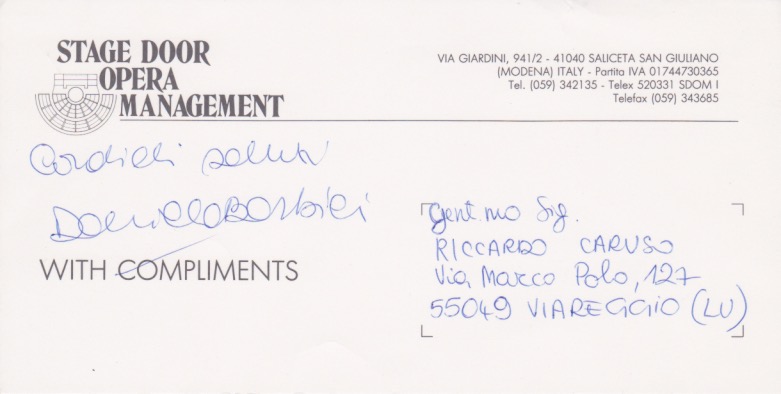 STAGE DOOR
OPERA
MANAGEMENT
VIA GIARDINI, 941/2 - 41040 SALICETA SAN GIULIANO
(MODENA) ITALY - Partita IVA 01744730365
Tel. (059) 342135 - Telex 520331 SDOM I
Telefax (059) 343685
Cordiali saluti
WITH COMPLIMENTS
Gent.mo Sig.
RICCARDO CARUSO
Via Marco Polo, 127
55049 VIAREGGIO (LU)